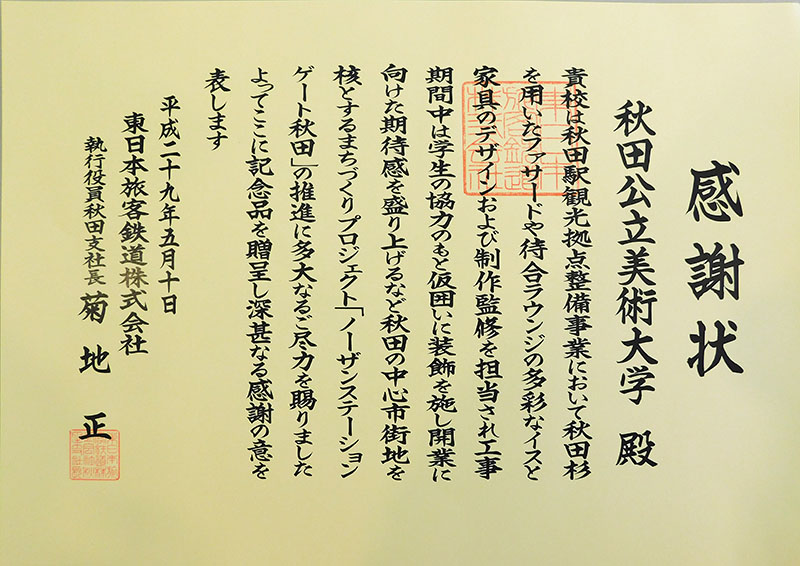 感謝状
秋田公立美術大学 殿
貴校は秋田駅観光拠点整備事業において秋田杉
を用いたファサードや待合ラウンジの多彩なイスと
家具のデザインおよび制作監修を担当され工事
期間中は学生の協力のもと仮囲いに装飾を施し開業に
向けた期待感を盛り上げるなど秋田の中心市街地を
核とするまちづくりプロジェクト「ノーザンステーション
ゲート秋田」の推進に多大なるご尽力を賜りました
よってここに記念品を贈呈し深甚なる感謝の意を
表します
平成二十九年五月十日
東日本旅客鉄道株式会社
執行役員秋田支社長 菊地 正